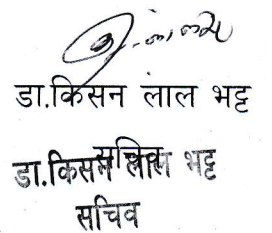 डा.किसन लाल भट्ट
सचिव
डा.किसन लाल भट्ट
सचिव